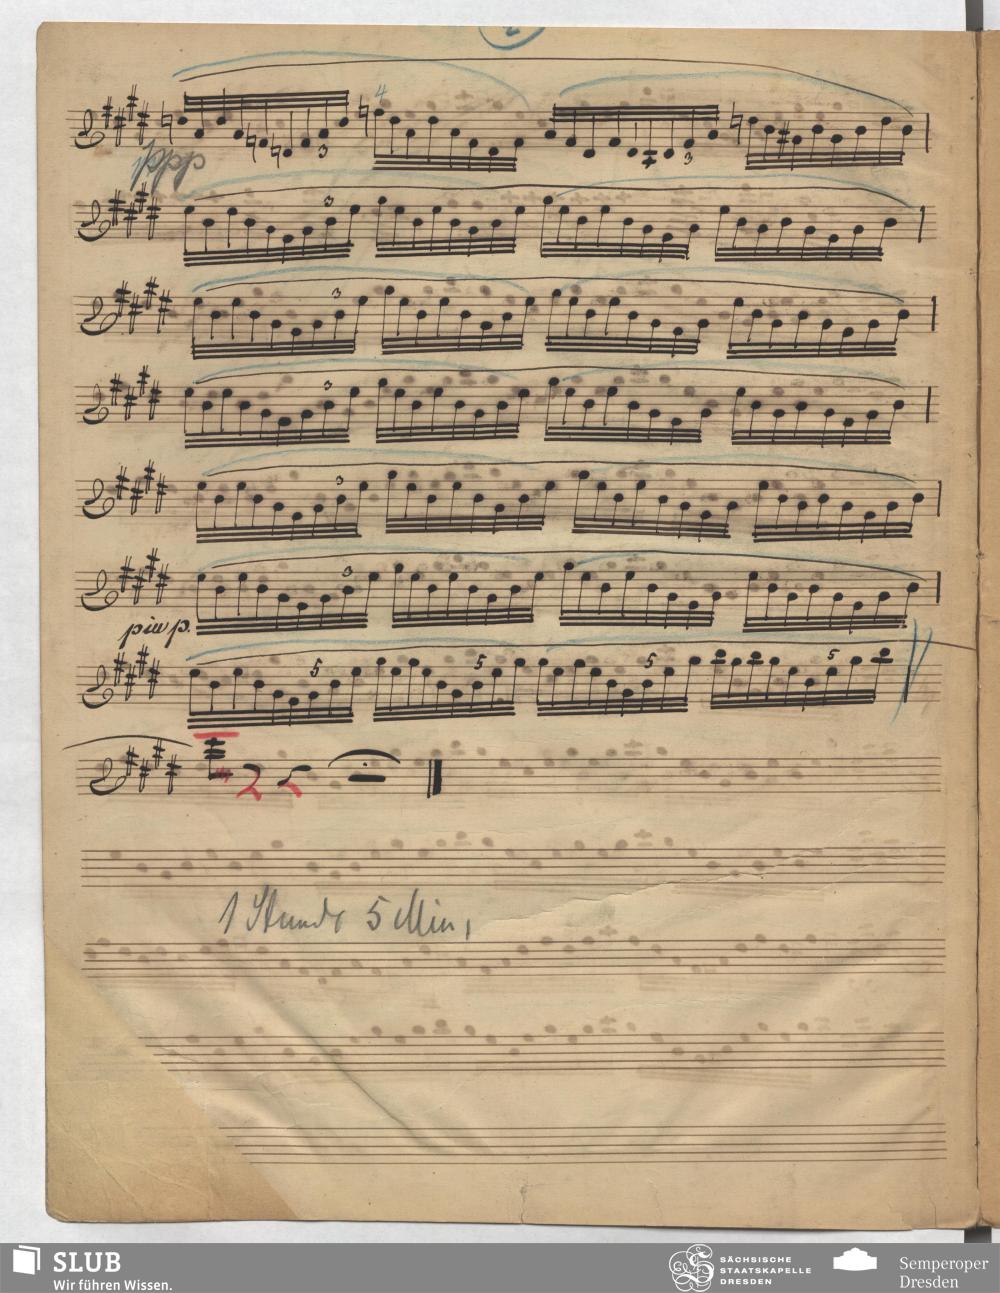 2
4
3
3
ppp
3
3
3
3
3
piu p.
5
5
5
5
1 Stunde 5 Min,
SLUB
Wir führen Wissen.
SÄCHSISCHE
STAATSKAPELLE
DRESDEN
Semperoper
Dresden